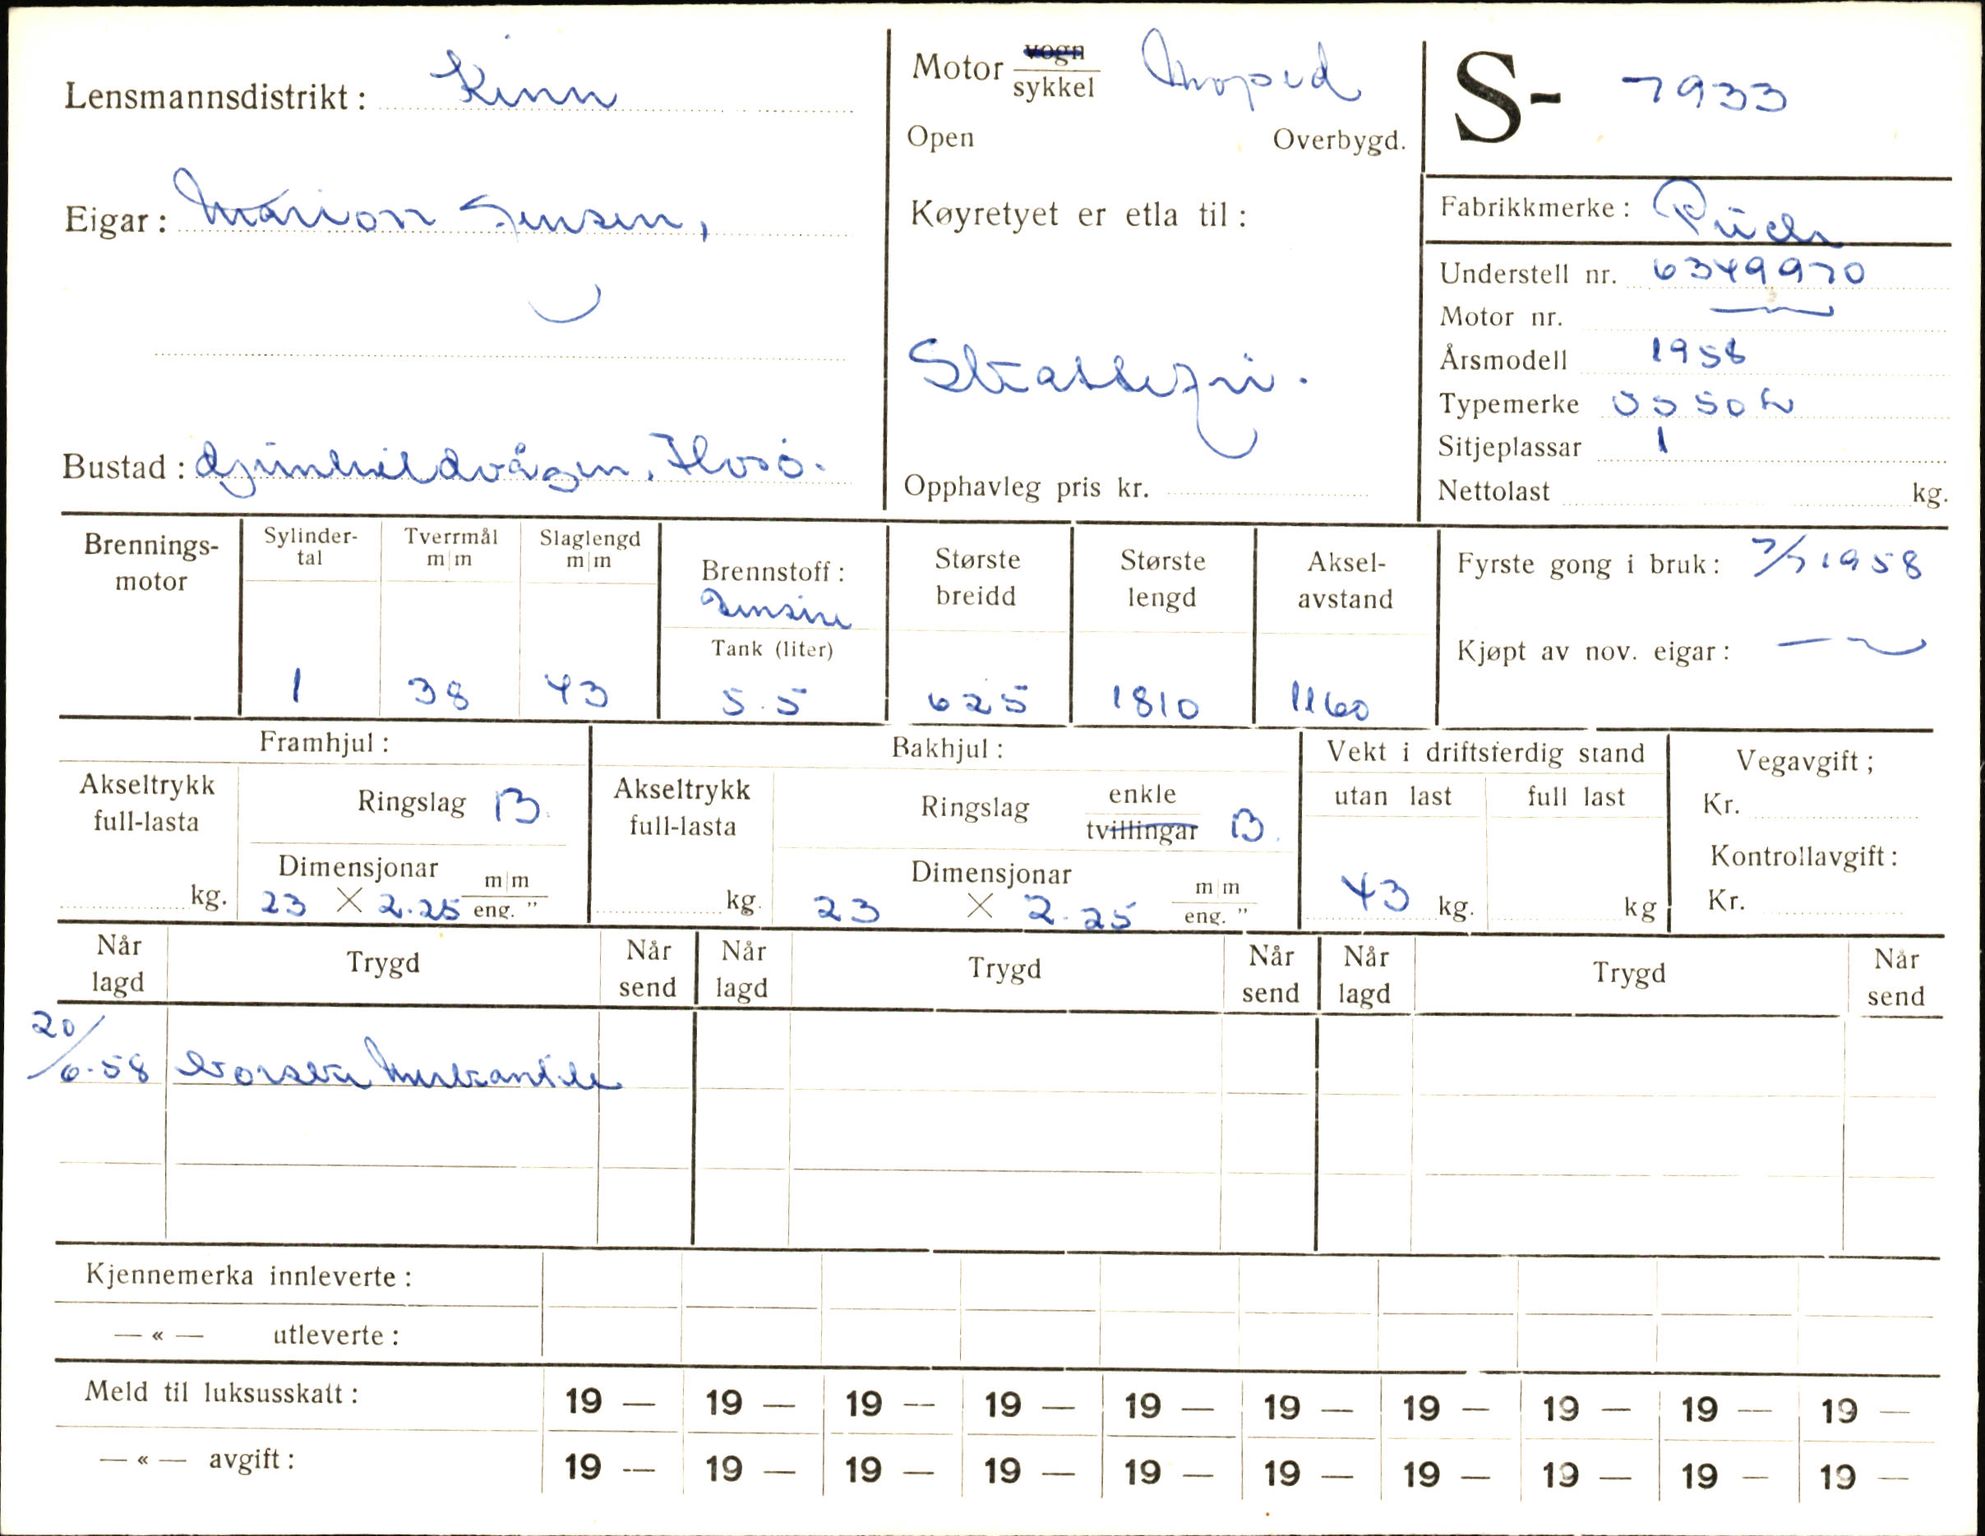 Lensmannsdistrikt: Kinn
Motor vogn/sykkel Moped
S- 7933
Open Overbygd.
Eigar: Marion Jensen,
Køyretyet er etla til:
Fabrikkmerke: Püch
Understell nr. 6349970
Motor nr. —
Årsmodell 1958
Skattefri.
Typemerke
Sitjeplassar 1
Bustad:
Opphavleg pris kr.
Nettolast kg.
Brennings-
motor
Sylinder-
tal
1
Tverrmål
m/m
38
Slaglengd
m/m
43
Brennstoff:
Bensin
Tank (liter)
5.5
Største
breidd
625
Største
lengd
1810
Aksel-
avstand
1160
Fyrste gong i bruk: 7/7 1958
Kjøpt av nov. eigar: —
Framhjul:
Akseltrykk
full-lasta
kg.
Ringslag B.
Dimensjonar
23 × 2.25 m/m eng. "
Bakhjul:
Akseltrykk
full-lasta
kg.
Ringslag enkle/tvillingar B.
Dimensjonar
23 × 2.25 m/m eng. "
Vekt i driftsferdig stand
utan last
43 kg.
full last
kg
Vegavgift;
Kr.
Kontrollavgift:
Kr.
Når lagd Trygd Når send Når lagd Trygd Når send Når lagd Trygd Når send
20/6.58 Norske Merkantile
Kjennemerka innleverte:
— « — utleverte:
Meld til luksusskatt: 19 — 19 — 19 — 19 — 19 — 19 — 19 — 19 — 19 — 19 —
— « — avgift: 19 — 19 — 19 — 19 — 19 — 19 — 19 — 19 — 19 — 19 —